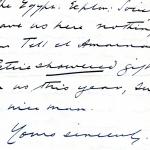 the Egypt. Explor. Soci
have us here nothin
on Tell el Amarna
Petrie showered gift
on us this year, su
nice man.
Yours sincerely